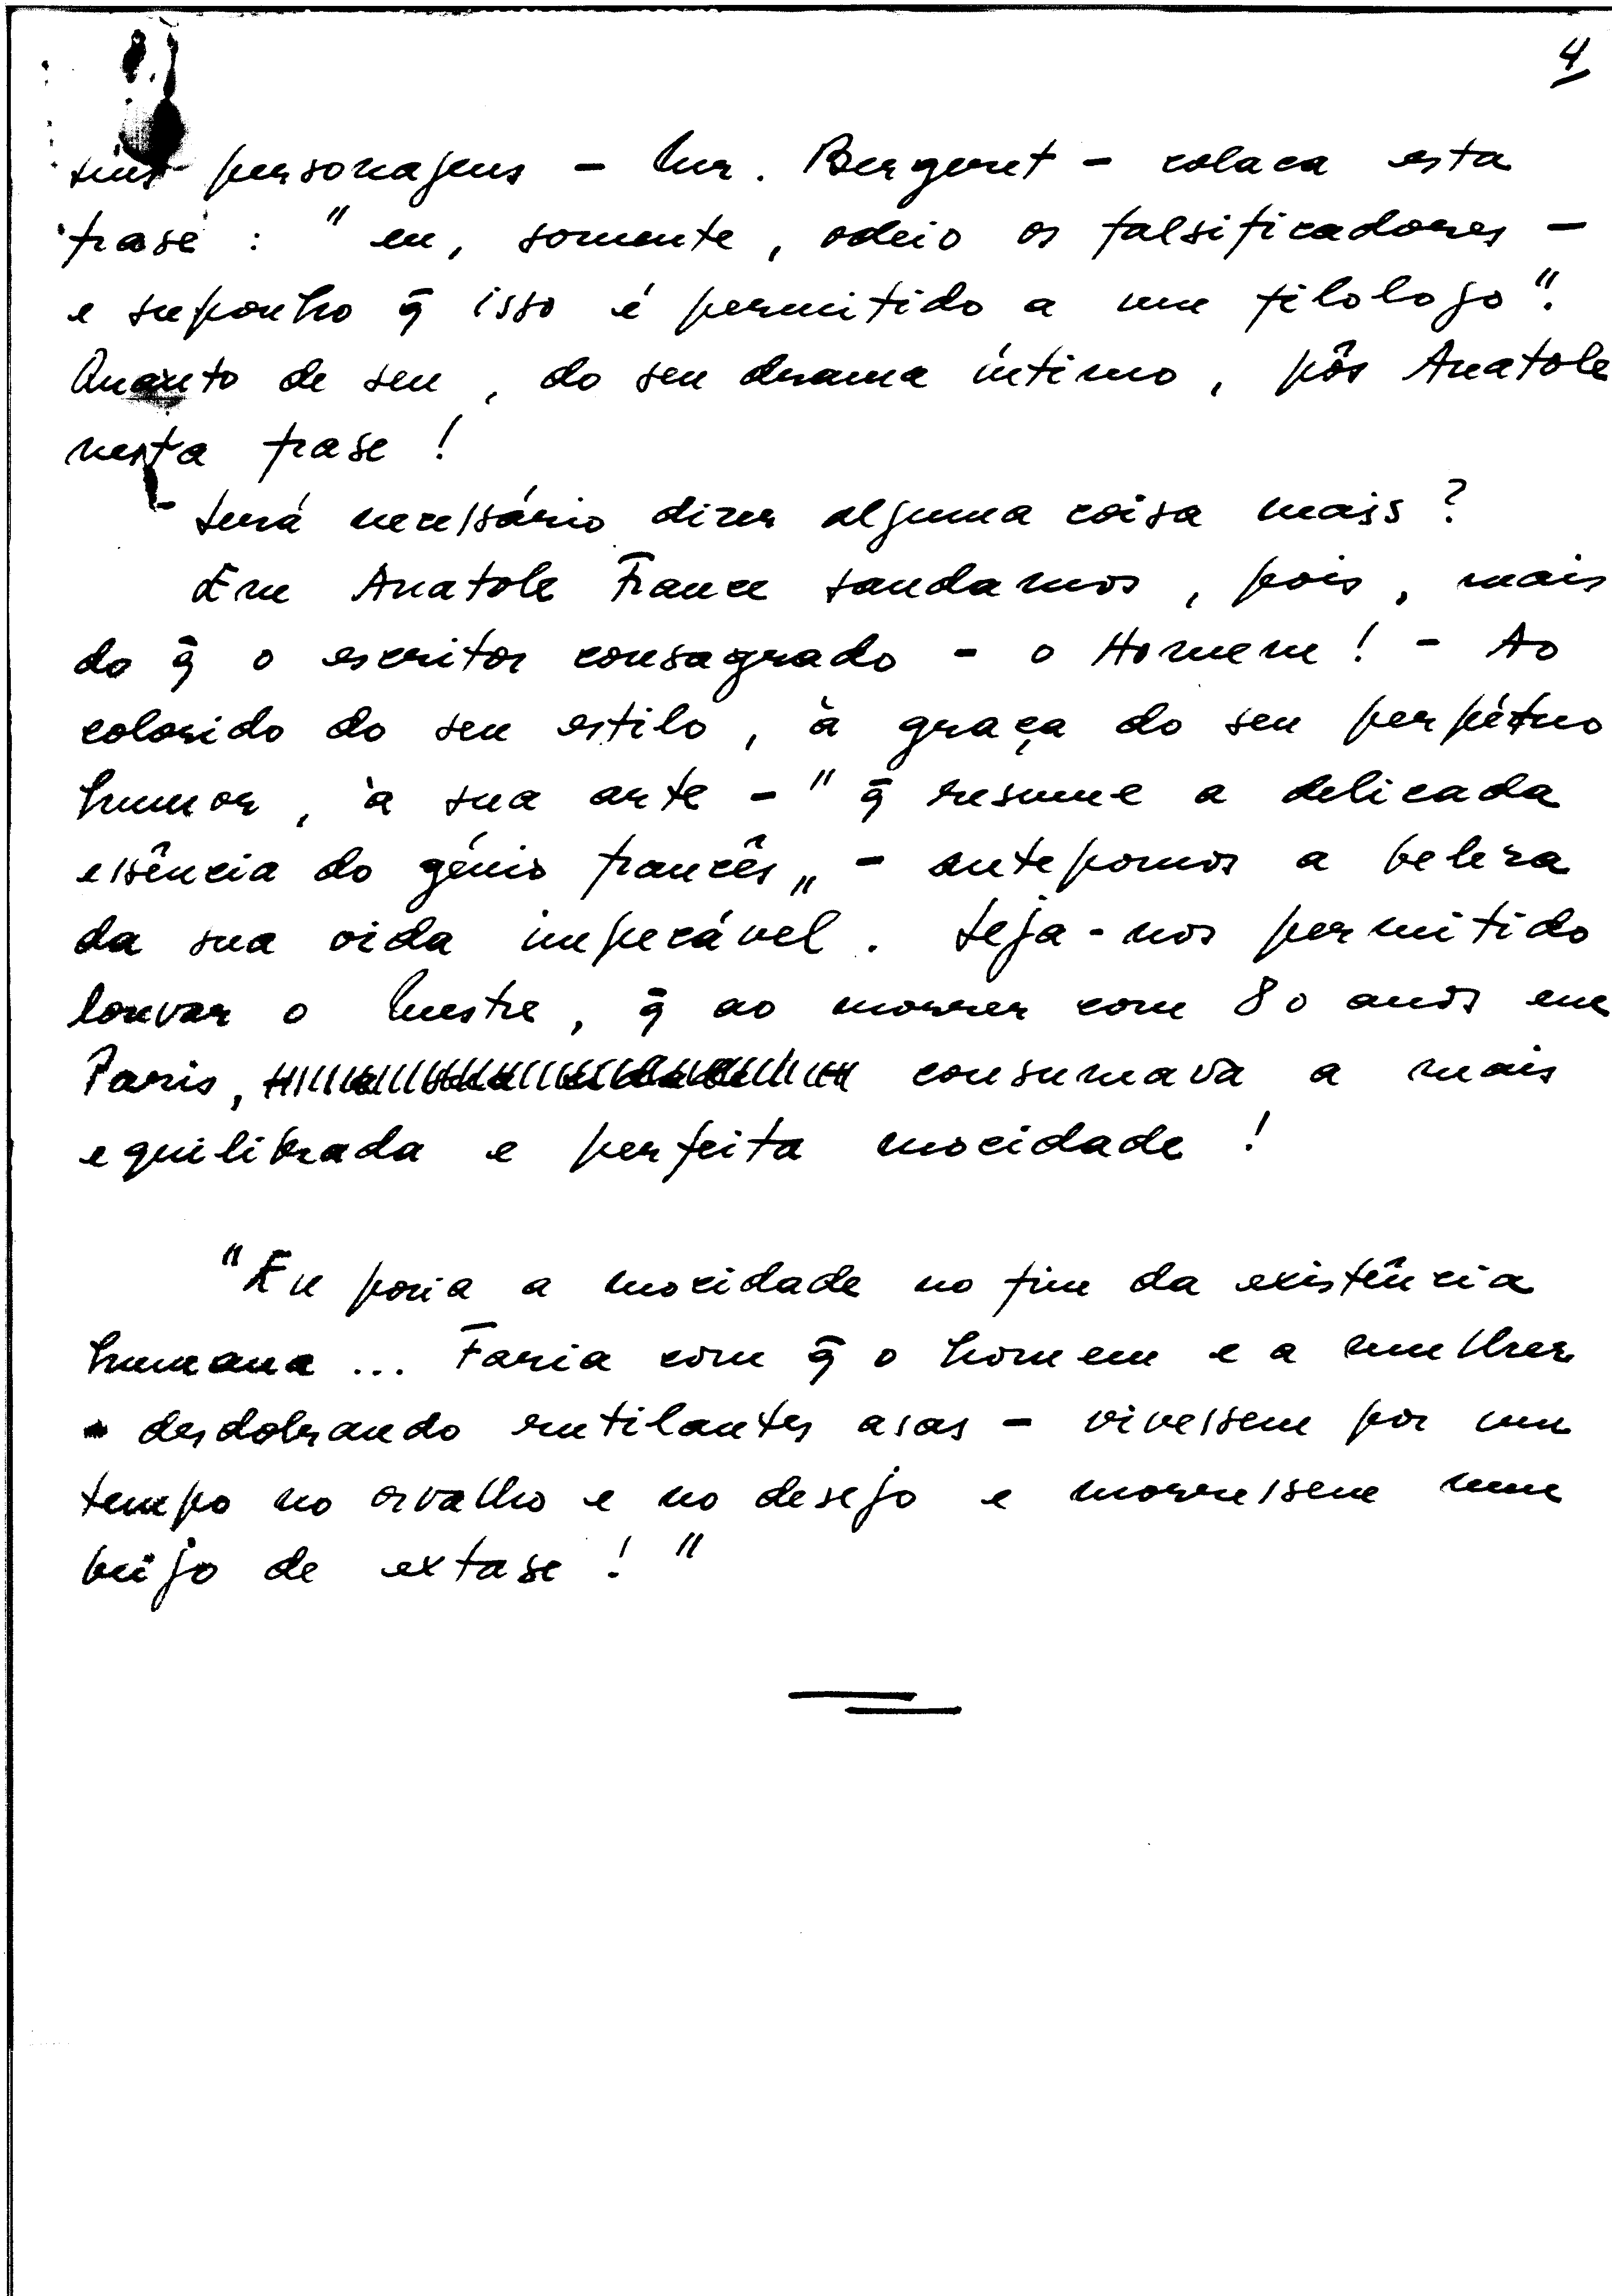 4
seus personagens - Mr. Bergeret - colaca esta
frase : " eu, somente, odeio os falsificadores -
e suponho q̄ isso é permitido a um filologo".
Quanto de seu, do seu drama íntimo, pôs Anatole
nesta frase !
- Será necessário dizer alguma coisa mais ?
Em Anatole France saudamos, pois, mais
do q̄ o escritor consagrado - o Homem ! - Ao
colorido do seu estilo, à graça do seu perpétuo
humor, à sua arte - " q̄ resume a delicada
essência do génio francês „ - antepomos a beleza
da sua vida impecável. Seja-nos permitido
louvar o Mestre, q̄ ao morrer com 80 anos em
Paris, consumava a mais
equilibrada e perfeita mocidade !
"Eu poria a mocidade no fim da existência
humana ... Faria com q̄ o homem e a mulher
- desdobrando rutilantes asas - vivessem por um
tempo no orvalho e no desejo e morressem num
beijo de extase ! "